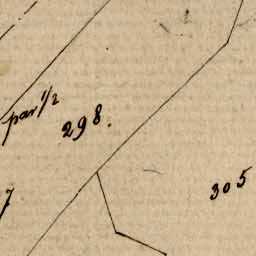 par 1/2
298.
305